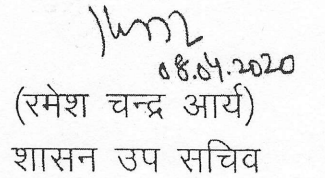 08.04.2020
(रमेश चन्द्र आर्य)
शासन उप सचिव